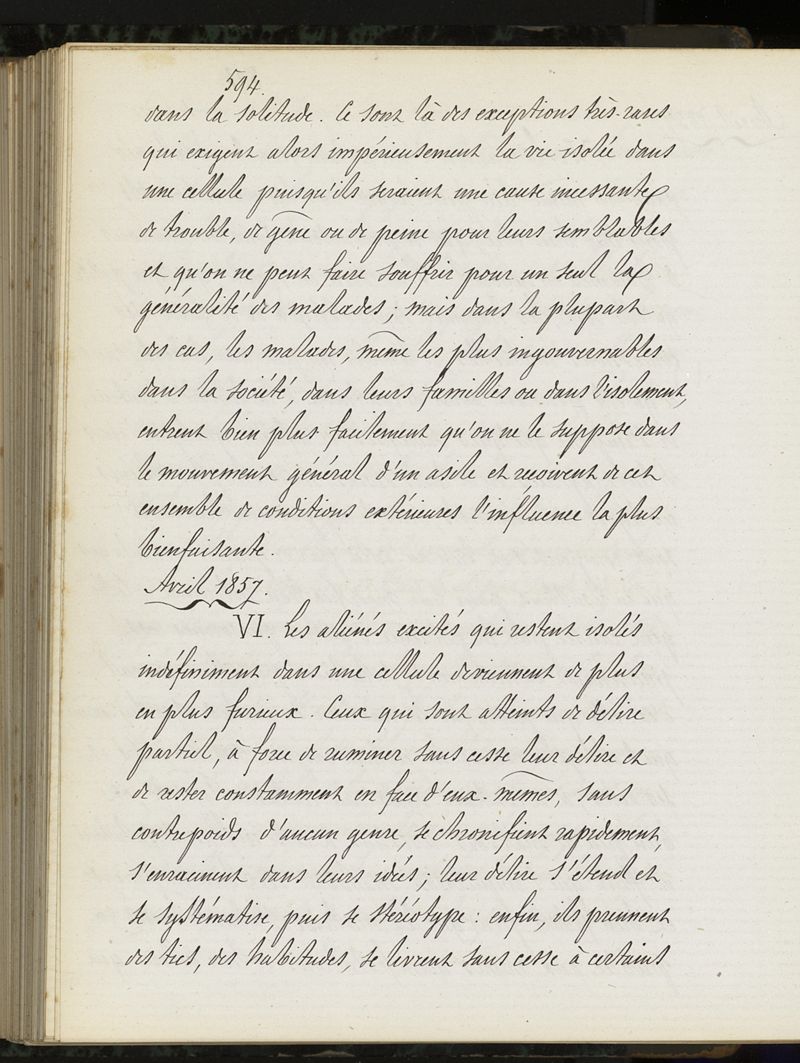 594.
dans la solitude. Ce sont là des exceptions très-rares
qui exigent alors impérieusement la vie isolée dans
une cellule puisqu'ils seraient une cause incessante
de trouble, de gêne ou de peine pour leurs semblables
et qu'on ne peut faire souffrir pour un seul la
généralité des malades; mais dans la plupart
des cas, les malades, même les plus ingouvernables
dans la société, dans leurs familles ou dans l'isolement,
entrent bien plus facilement qu'on ne le suppose dans
le mouvement général d'un asile et reçoivent de cet
ensemble de conditions extérieures l'influence la plus
bienfaisante.
Avril 1857.
VI. Les aliénés excités qui restent isolés
indéfiniment dans une cellule deviennent de plus
en plus furieux. Ceux qui sont atteints de délire
partiel, à force de ruminer sans cesse leur délire et
de rester constamment en face d'eux-mêmes, sans
contrepoids d'aucun genre, se chronifient rapidement,
s'enracinent dans leurs idées; leur délire s'étend et
se systématise, puis se stéréotype: enfin, ils prennent
des tics, des habitudes, se livrent sans cesse à certains